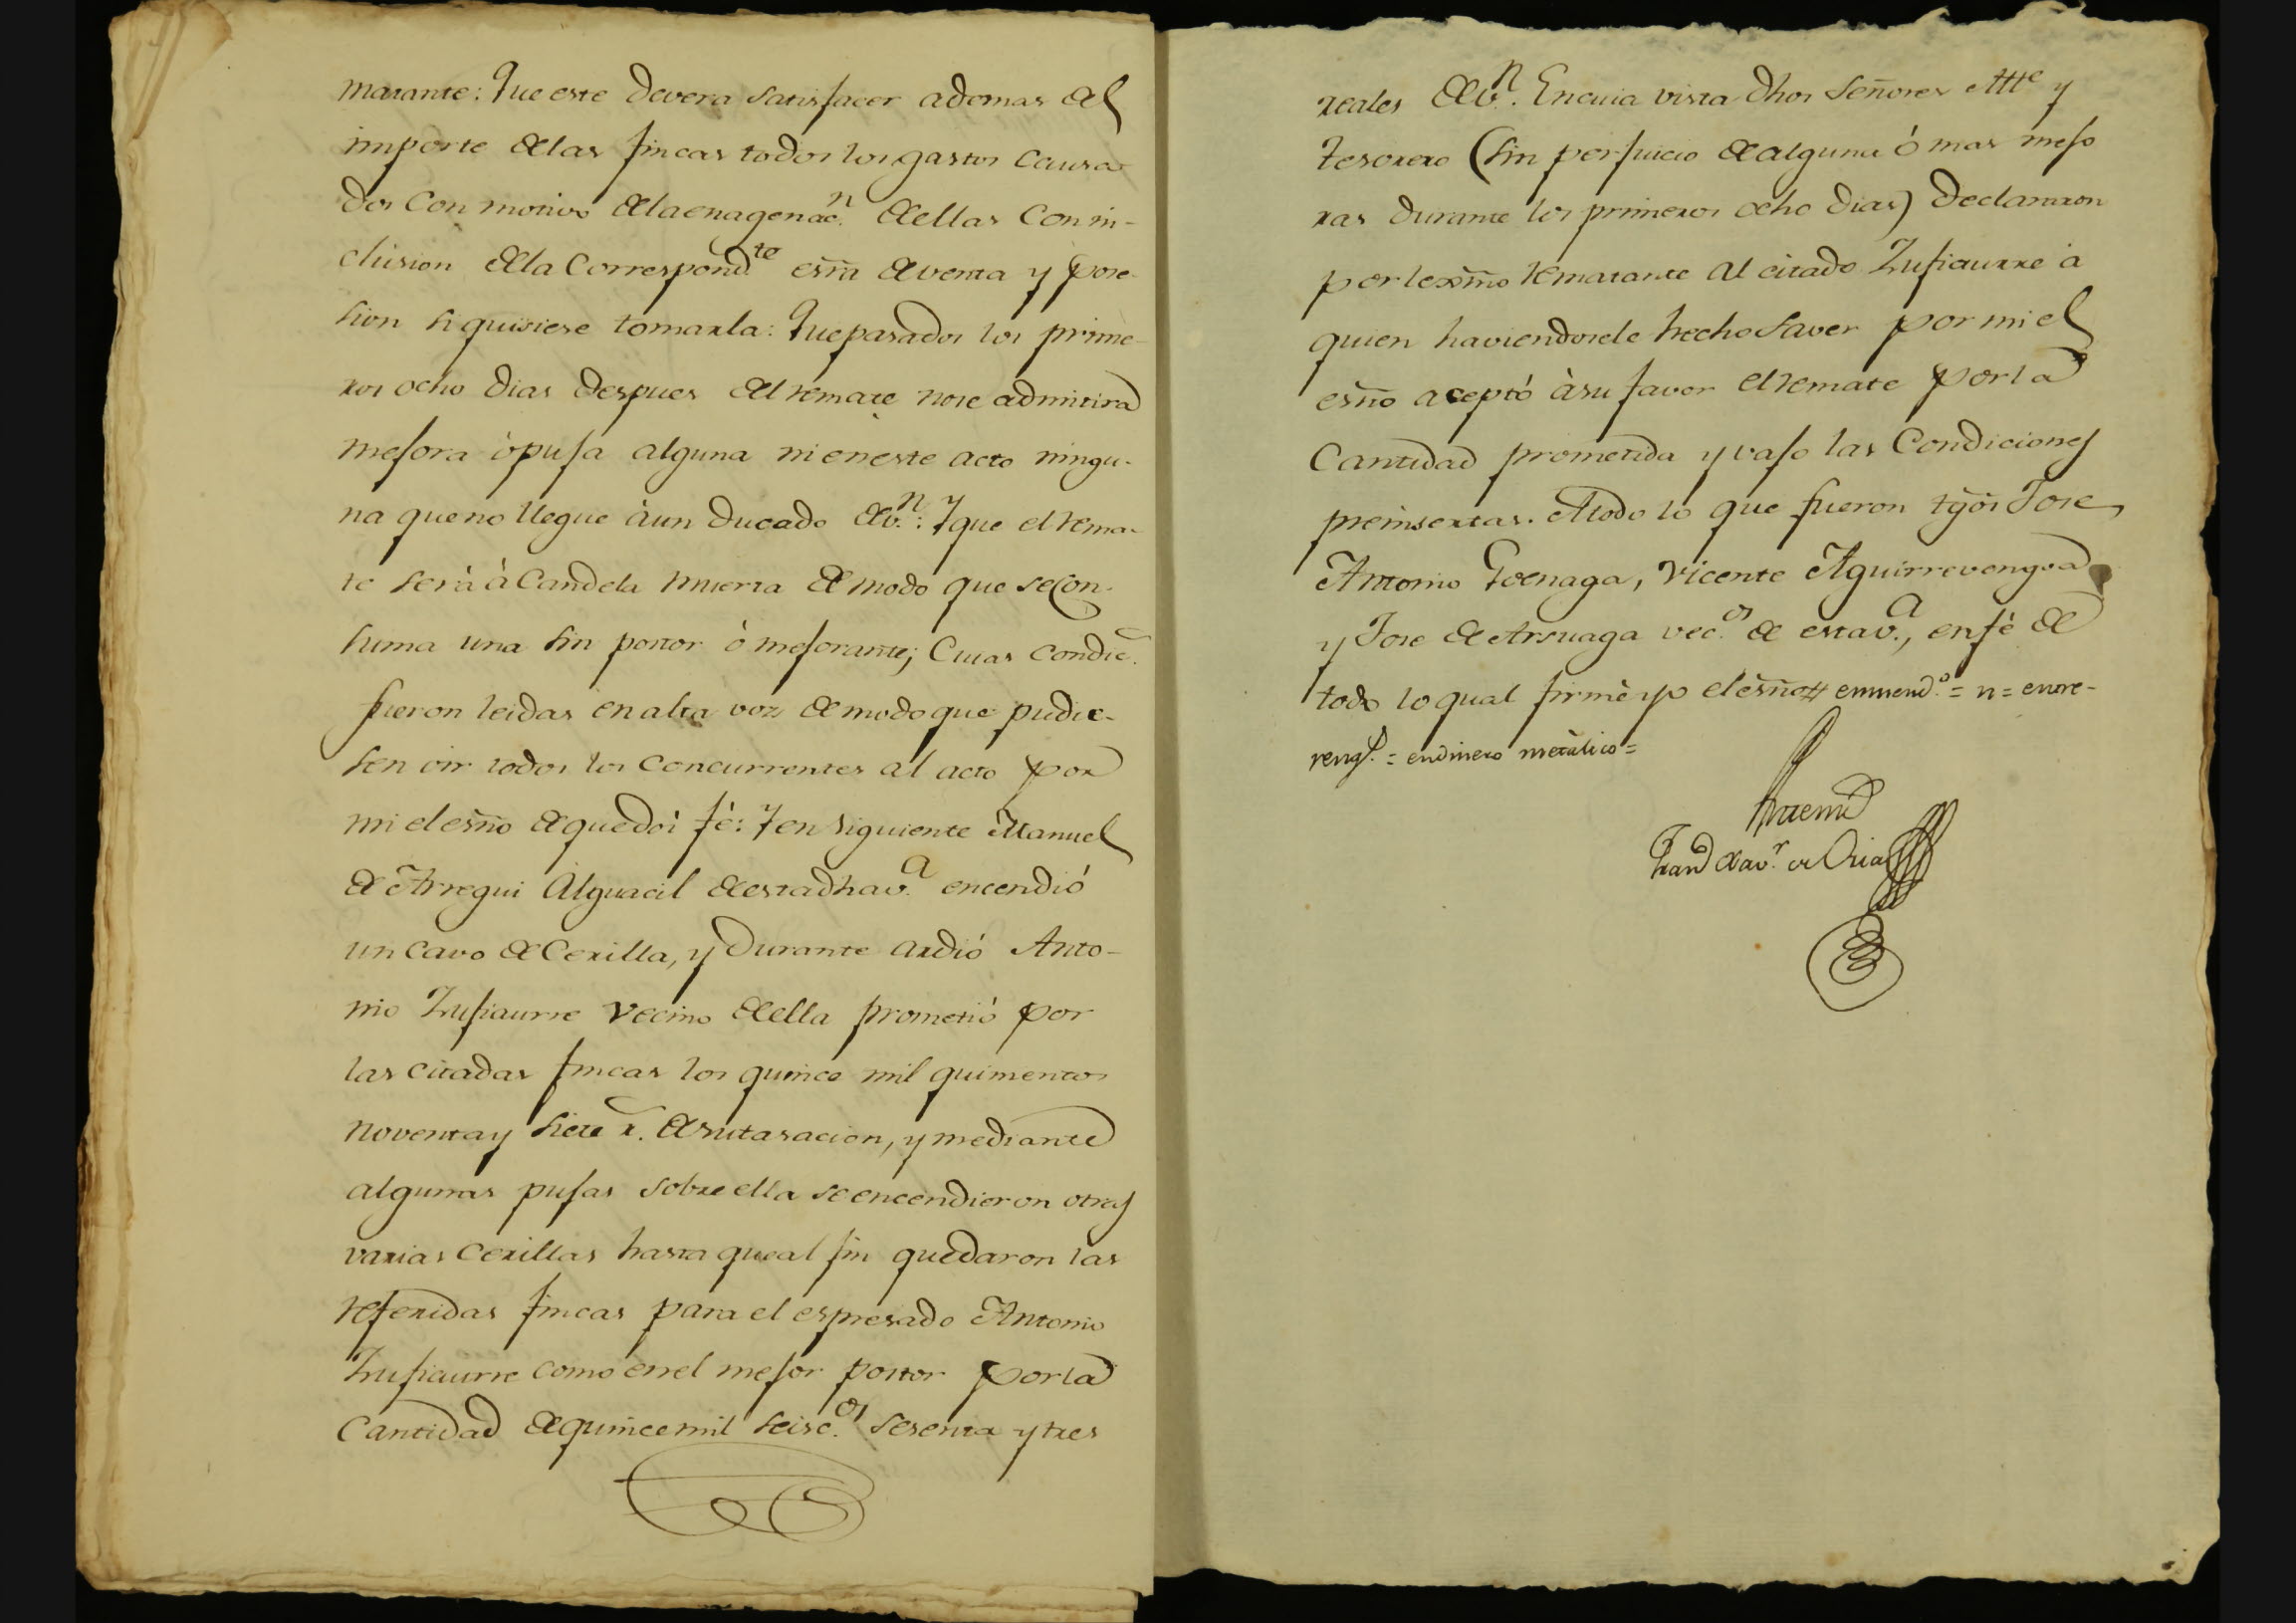 matante: Que este devera satisfacer ademas del
importe de las fincas todos los gastos causa
dos con motivo de la enagenac.n de ellas con in-
clusion de la correspond.te esrra de venta y pose-
sion si quisiere tomarla: Que pasados los prime-
ros ocho dias despues del remate no se admitira
mejora ò puja alguna ni en este acto ningu-
na que no llegue à un ducado de v.n: Y que el rema-
te serà à candela muerta de modo que se con-
suma una sin postor ò mejorante; cuias condic.
fueron leidas en alta voz de modo que pudie-
sen oir todos los concurrentes al acto por
mi el esño de que doi fè: Y en siguiente Manuel
de Arregui Alguacil de esta dha v.a encendió
un cavo de cerilla, y durante ardió Anto-
nio Zufiaurre vecino de ella prometió por
las citadas fincas los quince mil quinientos
noventa y siete r. de su tasacion, y mediante
algunas pujas sobre ella se encendieron otras
varias cerillas hasta que al fin quedaron las
referidas fincas para el espresado Antonio
Zufiaurre como en el mejor postor por la
cantidad de quince mil seisc.os sesenta y tres
reales de v.n. En cuia vista dhos Señores Alle y
tesorero (sin perjuicio de alguna ó mas mejo
ras durante los primeros ocho dias) declararon
por lexmo rematante al citado Zufiaurre à
quien haviendosele hecho saver por mi el
esño aceptó à su favor el remate por la
cantidad prometida y vajo las condiciones
preinsertas. A todo lo que fueron tgos Jose
Antonio Goenaga, Vicente Aguirrevengoa
y Jose de Arsuaga vec.os de esta v.a, en fè de
todo lo qual firmè yo el esño # enmend.o = n = entre-
rengl. = en dinero metàlico =
Ante mi
Fran.co Xav.r de Oria